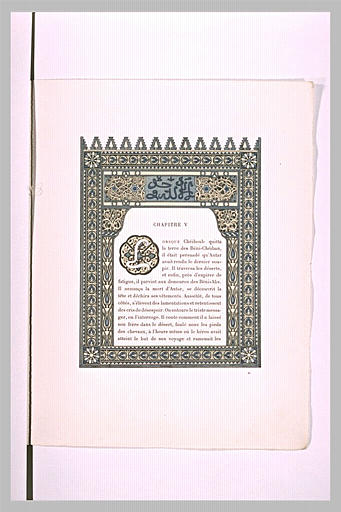 CHAPITRE V
LORSQUE Chéiboub quitta
la terre des Béni-Chéiban,
il était persuadé qu'Antar
avait rendu le dernier sou-
pir. Il traversa les déserts,
et enfin, près d'expirer de
fatigue, il parvint aux demeures des Béni-Abs.
Il annonça la mort d'Antar, se découvrit la
tête et déchira ses vêtements. Aussitôt, de tous
côtés, s'élèvent des lamentations et retentissent
des cris de désespoir. On entoure le triste messa-
ger, on l'interroge. Il conte comment il a laissé
son frère dans le désert, foulé sous les pieds
des chevaux, à l'heure même où le héros avait
atteint le but de son voyage et ramenait les